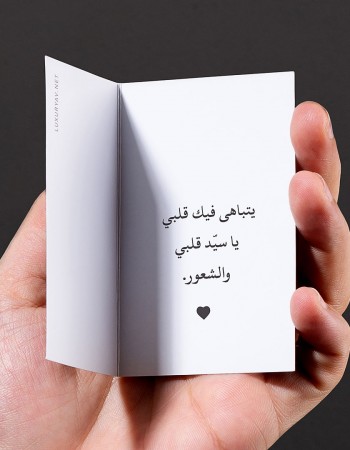 يتباهى فيك قلبي
يا سيّد قلبي
والشعور.